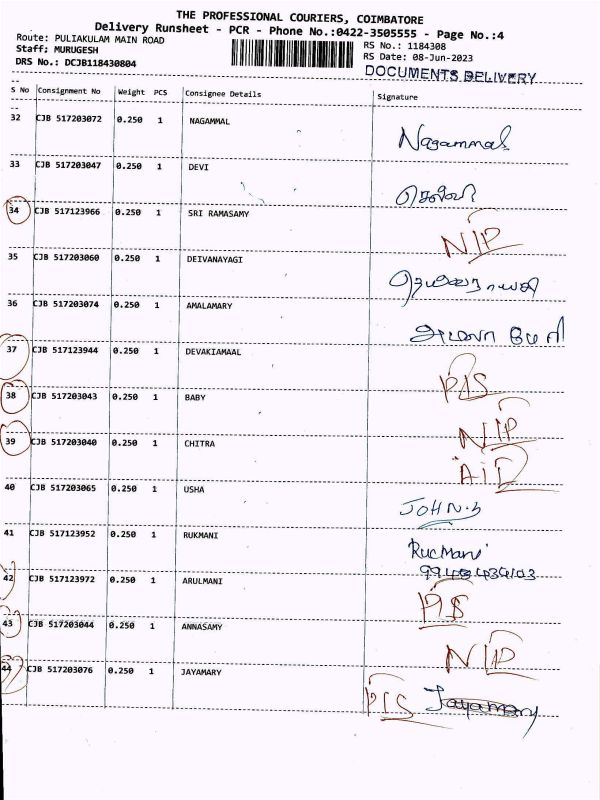 THE PROFESSIONAL COURIERS, COIMBATORE
Delivery Runsheet - PCR - Phone No.:0422-3505555 - Page No.:4
Route: PULIAKULAM MAIN ROAD RS No.: 1184308
Staff: MURUGESH RS Date: 08-Jun-2023
DRS No.: DCJB118430804 DOCUMENTS DELIVERY
S No Consignment No Weight PCS Consignee Details Signature
32 CJB 517203072 0.250 1 NAGAMMAL Nagammal
33 CJB 517203047 0.250 1 DEVI
34 CJB 517123966 0.250 1 SRI RAMASAMY NIP
35 CJB 517203060 0.250 1 DEIVANAYAGI தெய்வநாயகி
36 CJB 517203074 0.250 1 AMALAMARY அமலா மேரி
37 CJB 517123944 0.250 1 DEVAKIAMAAL PIS
38 CJB 517203043 0.250 1 BABY NIP
39 CJB 517203040 0.250 1 CHITRA AID
40 CJB 517203065 0.250 1 USHA JOHN.S
41 CJB 517123952 0.250 1 RUKMANI RucMani
42 CJB 517123972 0.250 1 ARULMANI PIS
43 CJB 517203044 0.250 1 ANNASAMY NIP
44 CJB 517203076 0.250 1 JAYAMARY PIS Jayamary